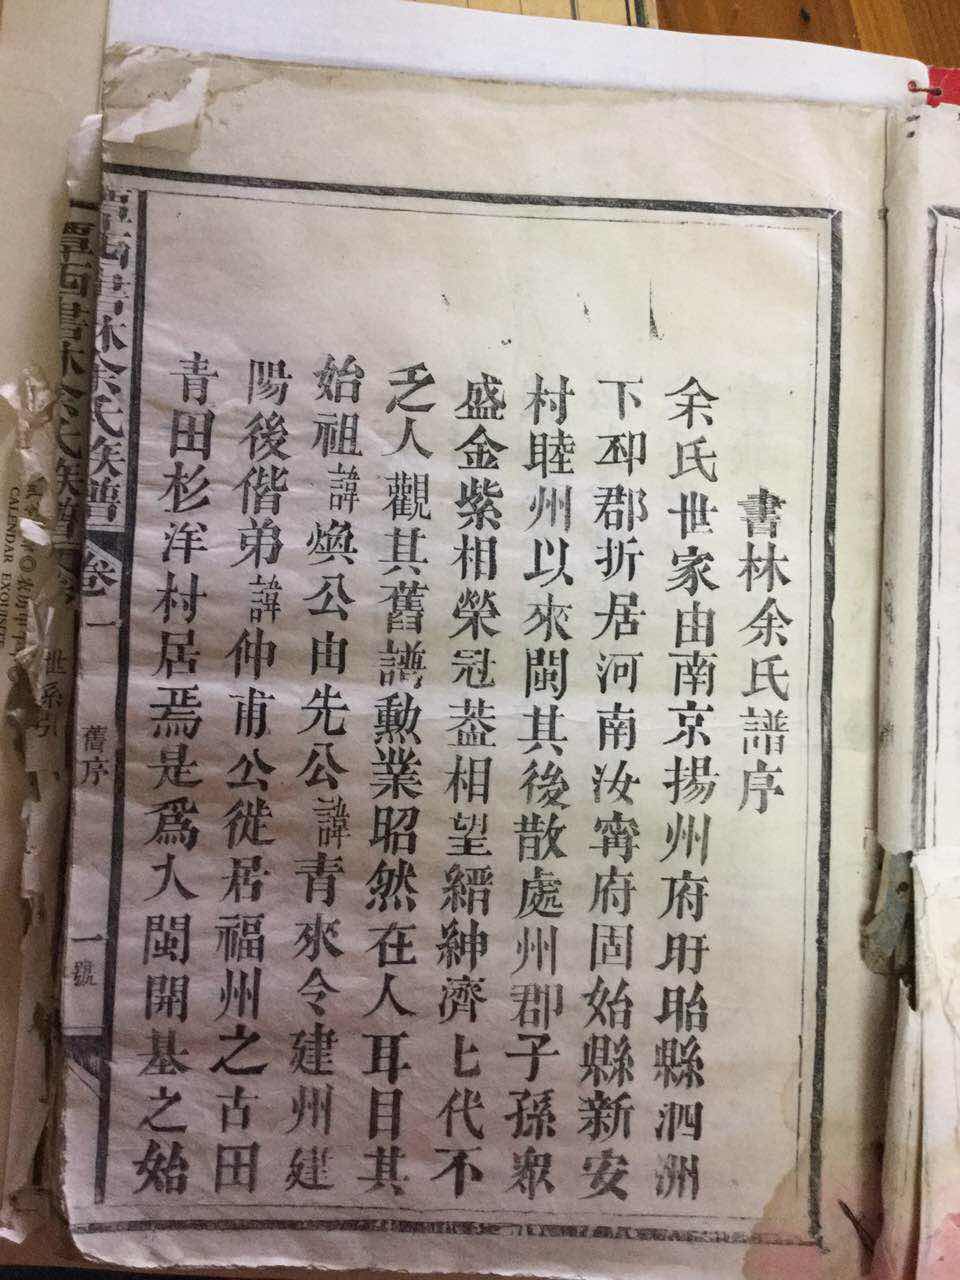 書林余氏譜序
余氏世家由南京揚州府盱眙縣泗洲
下邳郡折居河南汝甯府固始縣新安
村睦州以來閩其後散處州郡子孫眾
盛金紫相榮冠葢相望縉紳濟匕代不
乏人觀其舊譜勳業昭然在人耳目其
始祖諱煥公由先公諱青來令建州建
陽後偕弟諱仲甫公徙居福州之古田
青田杉洋村居焉是爲入閩開基之始
潭西書林余氏族譜 卷一 舊序 一號
潭西書林余氏族譜
世系引
CALENDAR EXQUISITE